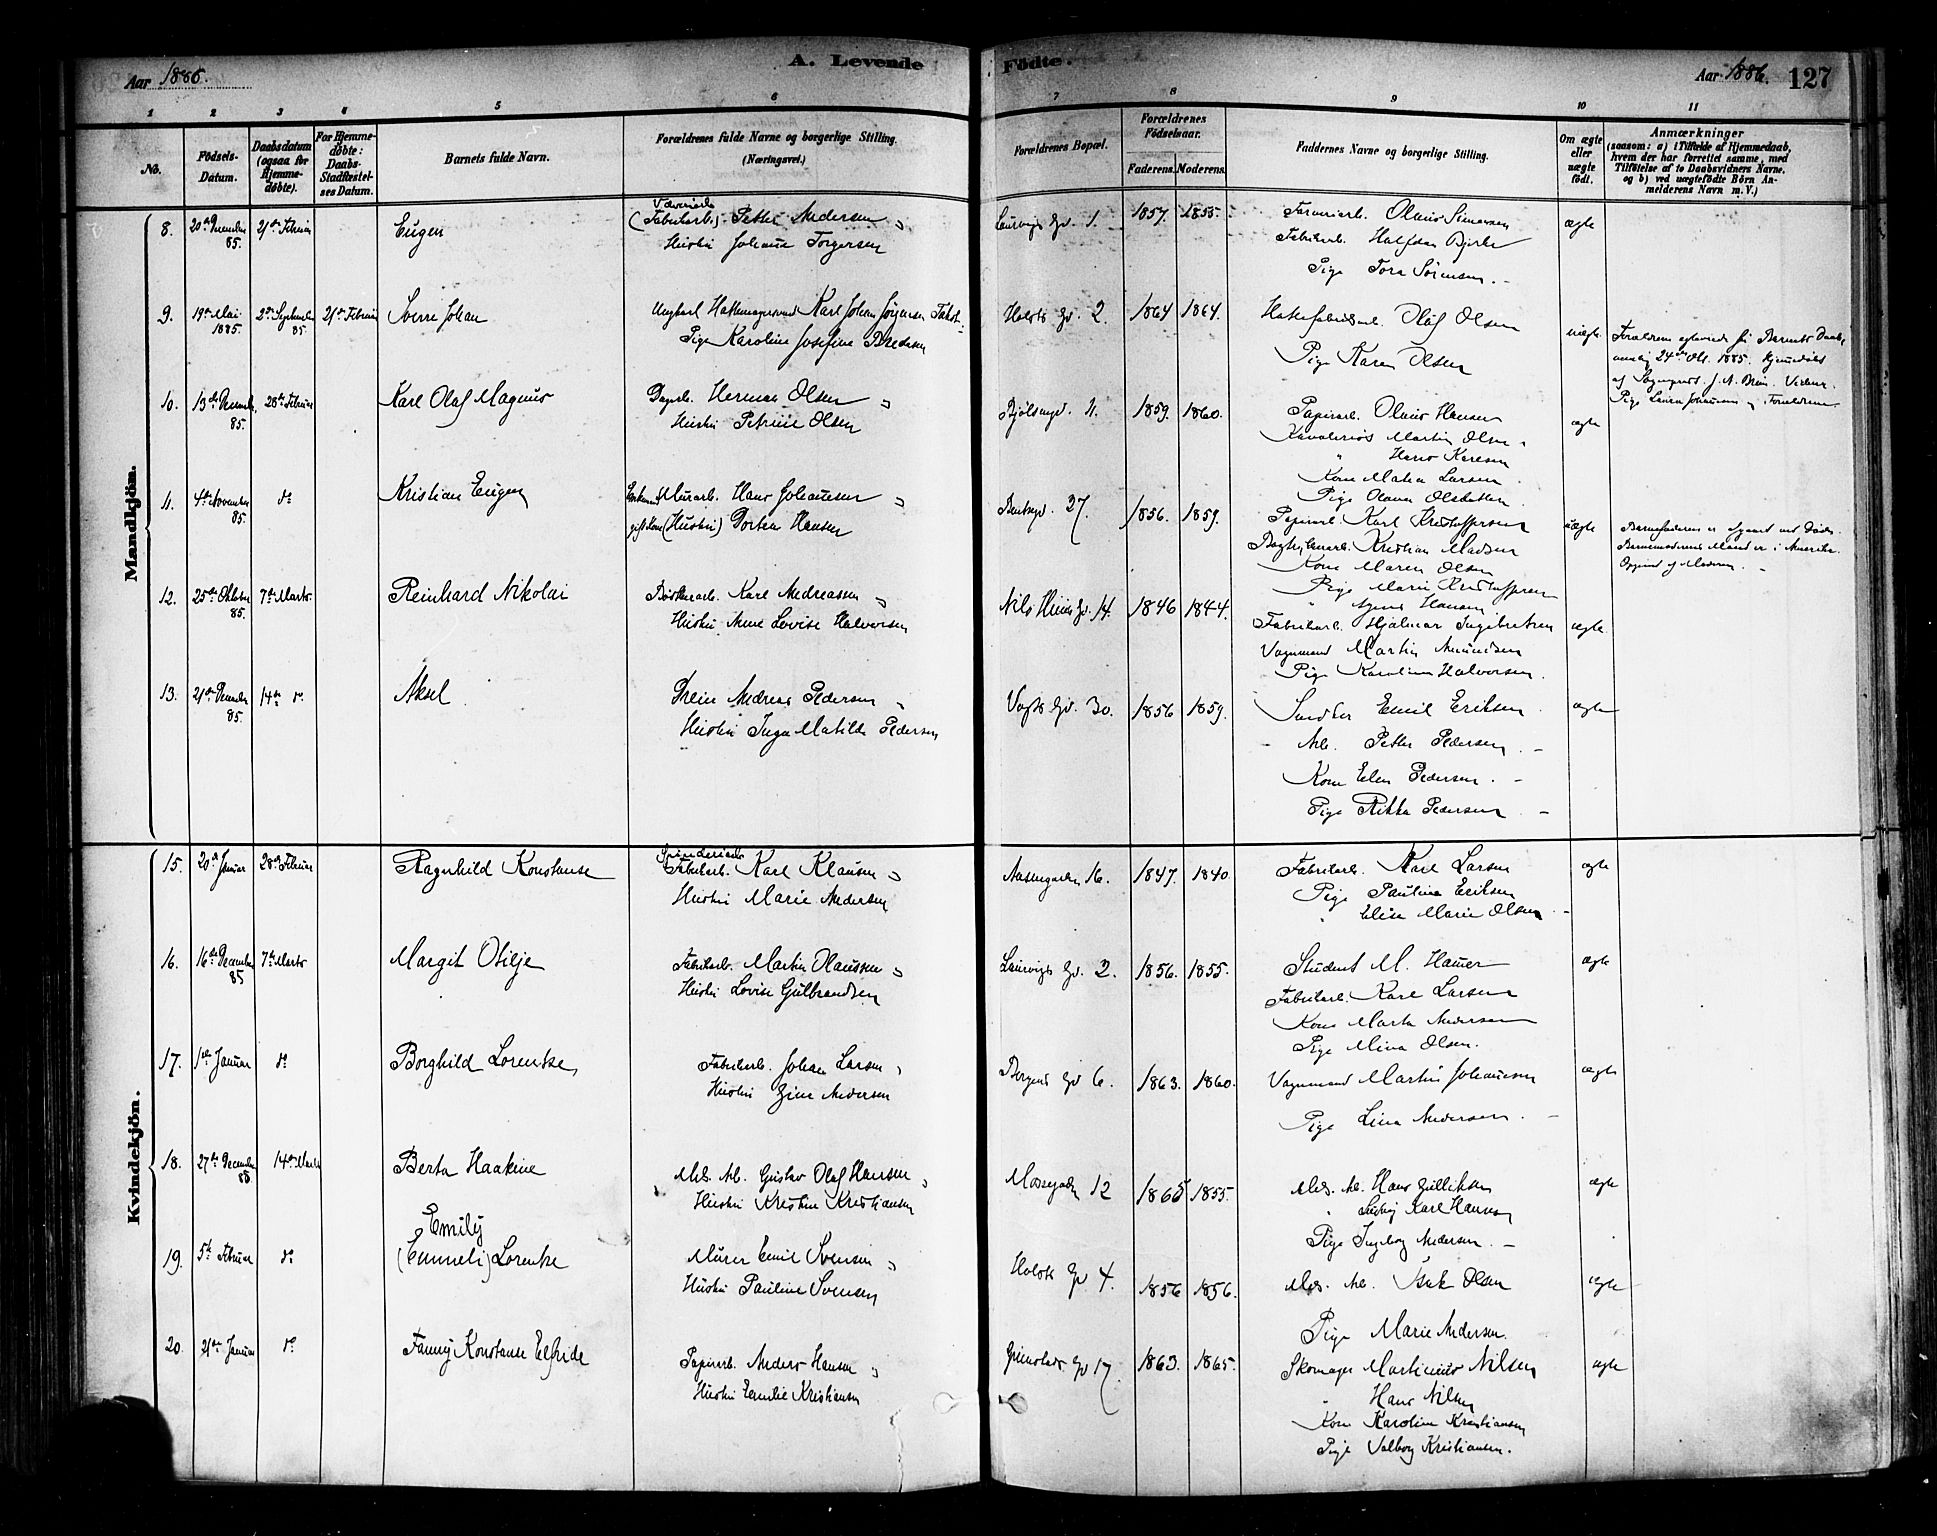 Aar 1886.
A. Levende Födte.
Aar 1886. 127
1 2 3 4 5 6 7 8 9 10 11
No.
Födsels-Datum.
Daabsdatum (ogsaa for Hjemme-döbte).
For Hjemme-döbte: Daabs-Stadfæstel-ses Datum.
Barnets fulde Navn.
Forældrenes fulde Navne og borgerlige Stilling. (Næringsvei.)
Forældrenes Bopæl.
Forældrenes Födselsaar.
Faderens. Moderens.
Faddernes Navne og borgerlige Stilling.
Om ægte eller uægte födt.
Anmærkninger
(saasom: a) i Tilfælde af Hjemmedaab,
hvem der har forrettet samme, med
Tilföielse af to Daabsvidners Navne.
og b) ved uægtefödte Börn An-
melderens Navn m. V.)
Mandkjön.
8. 20de December 85. 21de Februar Eugen
(Fabrikarb.) Petter Andersen
Hustru Johanne Torgersen
Laurvigs Gd. 1. 1857. 1855.
Olaus Simensen
Fabrikarb. Halfdan Bjerke
Pige Tora Sørensen
ægte
9. 19de Mai 1885. 2den September 85. 21de Februar Sverre Johan
Ungkarl Karl Johan Jørgensen
Pige Karoline Josefine Bredesen
Holsts Gd. 2. 1864 1864.
Olaf Olsen
Pige Karen Olsen
uægte
24de Okt. 1885.
10. 13de December 85. 28de Februar Karl Olaf Magnus
Dagarb. Herman Olsen
Hustru Petrine Olsen
Bjølsengd. 11. 1859. 1860.
Papirarb. Olaus Hansen
Martin Olsen
Hans Karlsen
Kone Maten Larsen
Pige
ægte
11. 4de November 85. do Kristian Eugen
Murarb. Hans Johansen
gift Kone (Hustru) Dortea Hansen
Bentsegd. 27. 1856. 1859.
Papirarb. Karl Kristoffersen
Kristian Madsen
Kone Maren Olsen
Pige Marie Kristoffersen
Agnes Hansen
uægte
Barnemoderens Mand er i Amerika.
Opgivet af Moderen.
12. 25de Oktober 85. 7de Marts Reinhard Nikolai
Karl Andreassen
Hustru Anne Lovise Halvorsen
Nils Huus Gd. 14. 1846 1844.
Fabrikarb. Hjalmar Ingebretsen
Vognmand Martin Amundsen
Pige Karoline Halvorsen.
ægte
13. 21de December 85. 14de do. Aksel
Andreas Pedersen
Hustru Inga Matilde Pedersen
Vogts Gd. 30. 1856 1859.
Emil Eriksen
Arb. Petter Pedersen
Kone Elen Pedersen.
Pige Rikka Pedersen
ægte
Kvindekjön.
15. 20de Januar 28de Februar Ragnhild Konstanse
Spinderiarb.
Fabrikarb. Karl Klausen
Hustru Marie Andersen
Aasengaden 16. 1847. 1840.
Fabrikarb. Karl Larsen
Pige Pauline Eriksen
Elise Marie Olsen
ægte
16. 16de December 85 7de Marts Margit Otilje
Fabrikarb. Martin Olaussen
Hustru Lovise Gulbrandsen
Laurvigs Gd. 2. 1856. 1855.
Student M. Hamer
Fabrikarb. Karl Larsen
Kone Marta Andersen
Pige Mina Olsen.
ægte
17. 1ste Januar do Borghild Lorentse
Fabrikarb. Johan Larsen
Hustru Gine Andersen
Bergens Gd 6. 1863. 1860.
Vognmand Martin Johansen
Pige Lina Andersen
ægte
18. 27de December 85 14de Marts Berta Haakine
Mek. Arb. Gustav Olaf Hansen
Hustru Kristine Kristiansen
Mossegaden 12 1865 1855.
Mek. Arb. Hans Gulliksen
Ludvig Karl Hansen
Pige Ingeborg Andersen.
ægte
19. 5te Februar do
Emily
(Emmeli) Lorentse
Murer Emil Svensen
Hustru Pauline Svensen
Holsts Gd 4. 1856 1856.
Mek. Arb. Isak Olsen
Pige Marie Andersen.
ægte
20. 21de Januar do Fanny Konstanse Elfride
Papirarb. Anders Hansen
Hustru Emilie Kristiansen
Grimstads Gd 17. 1863. 1865.
Skomager Martinius Nilsen
Hans Nilsen
Kone Karoline Kristiansen
Pige Valborg Kristiansen.
ægte